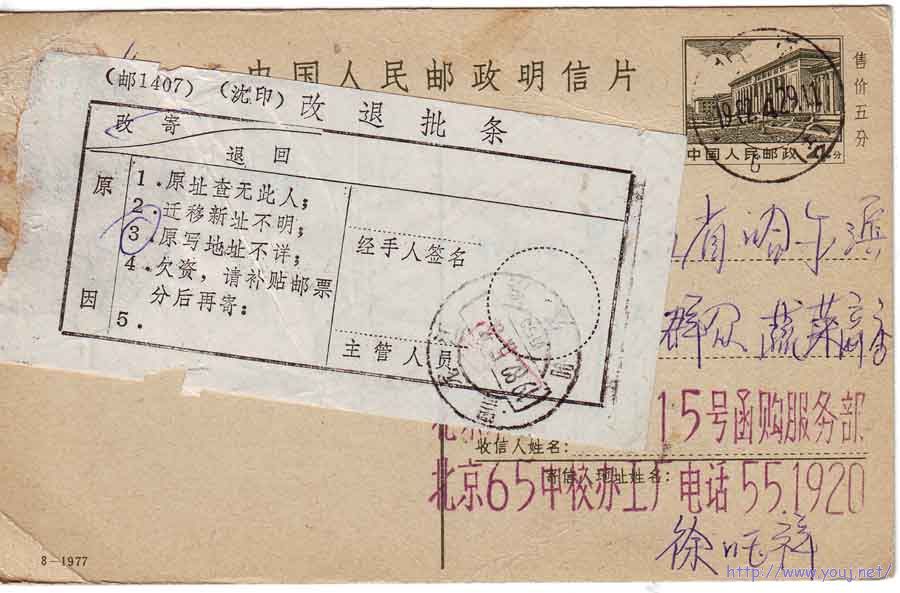 中国人民邮政明信片
售价五分
中国人民邮政
4分
(邮1407) (沈印) 改退批条
改寄
退回
原因
1.原址查无此人;
2.迁移新址不明;
3.原写地址不详;
4.欠资,请补贴邮票
分后再寄:
5.
经手人签名
主管人员
省哈尔滨
群众蔬菜商
15号函购服务部
收信人姓名:
寄信人地址姓名:
北京65中校办工厂电话55.1920
徐
祥
8-1977
http://www.youj.net/